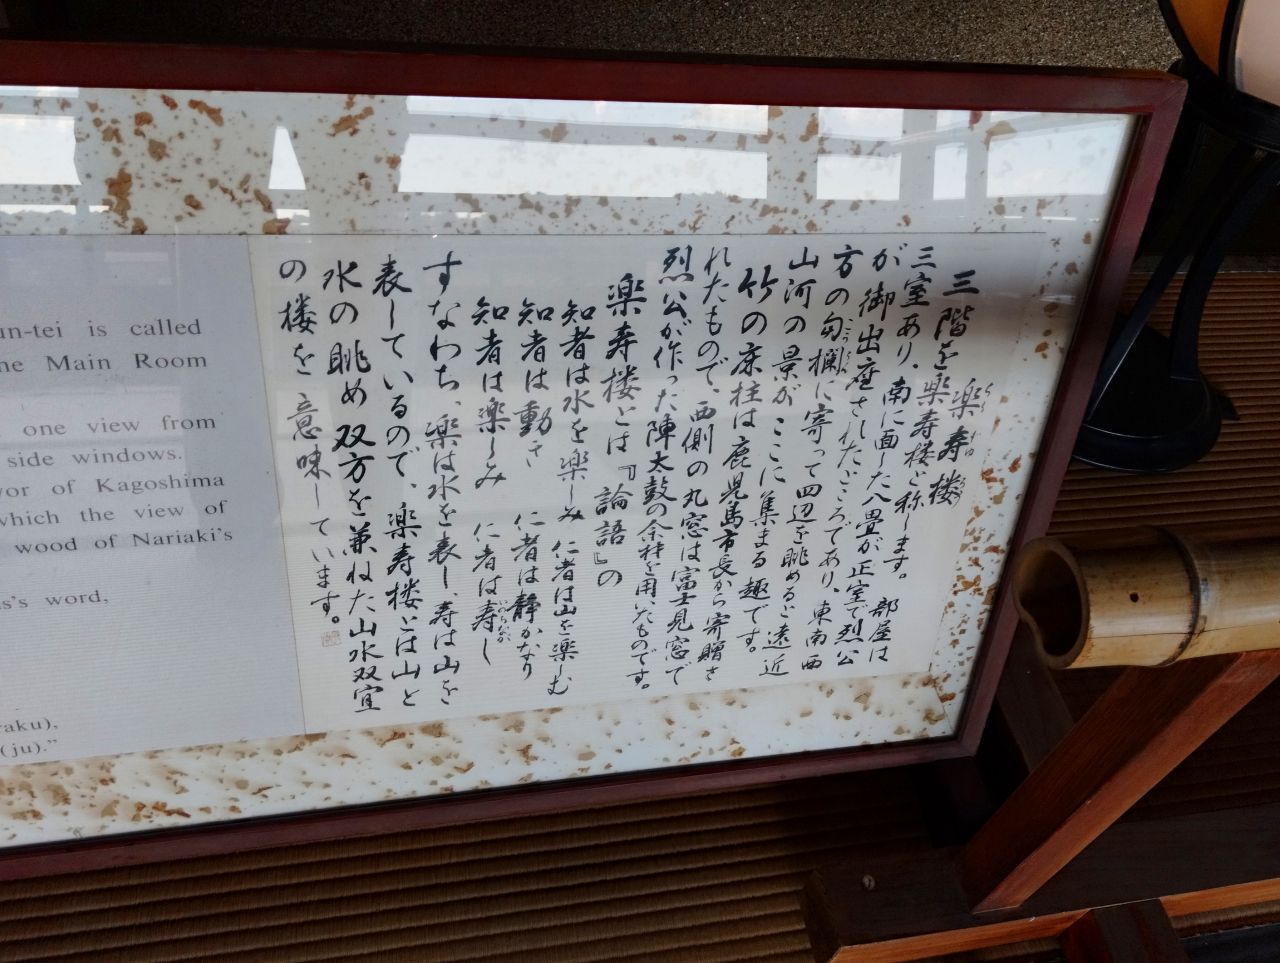 楽寿楼
らくじゅろう
三階を楽寿楼と称します。部屋は
三室あり、南に面した八畳が正室で烈公
が御出座されたところであり、東南西
方の勾欄に寄って四辺を眺めると遠近
こうらん
山河の景がここに集まる趣です。
竹の床柱は鹿児島市長から寄贈さ
れたもので、西側の丸窓は富士見窓で
烈公が作った陣太鼓の余材を用いたものです。
楽寿楼とは『論語』の
知者は水を楽しみ 仁者は山を楽しむ
知者は動き 仁者は静かなり
知者は楽しみ 仁者は寿し
いのちながし
すなわち、楽は水を表し、寿は山を
表しているので、楽寿楼とは山と
水の眺め双方を兼ねた山水双宜
の楼を意味しています。
un-tei is called
ne Main Room
one view from
side windows.
yor of Kagoshima
which the view of
wood of Nariaki's
s's word,
raku),
(ju)."